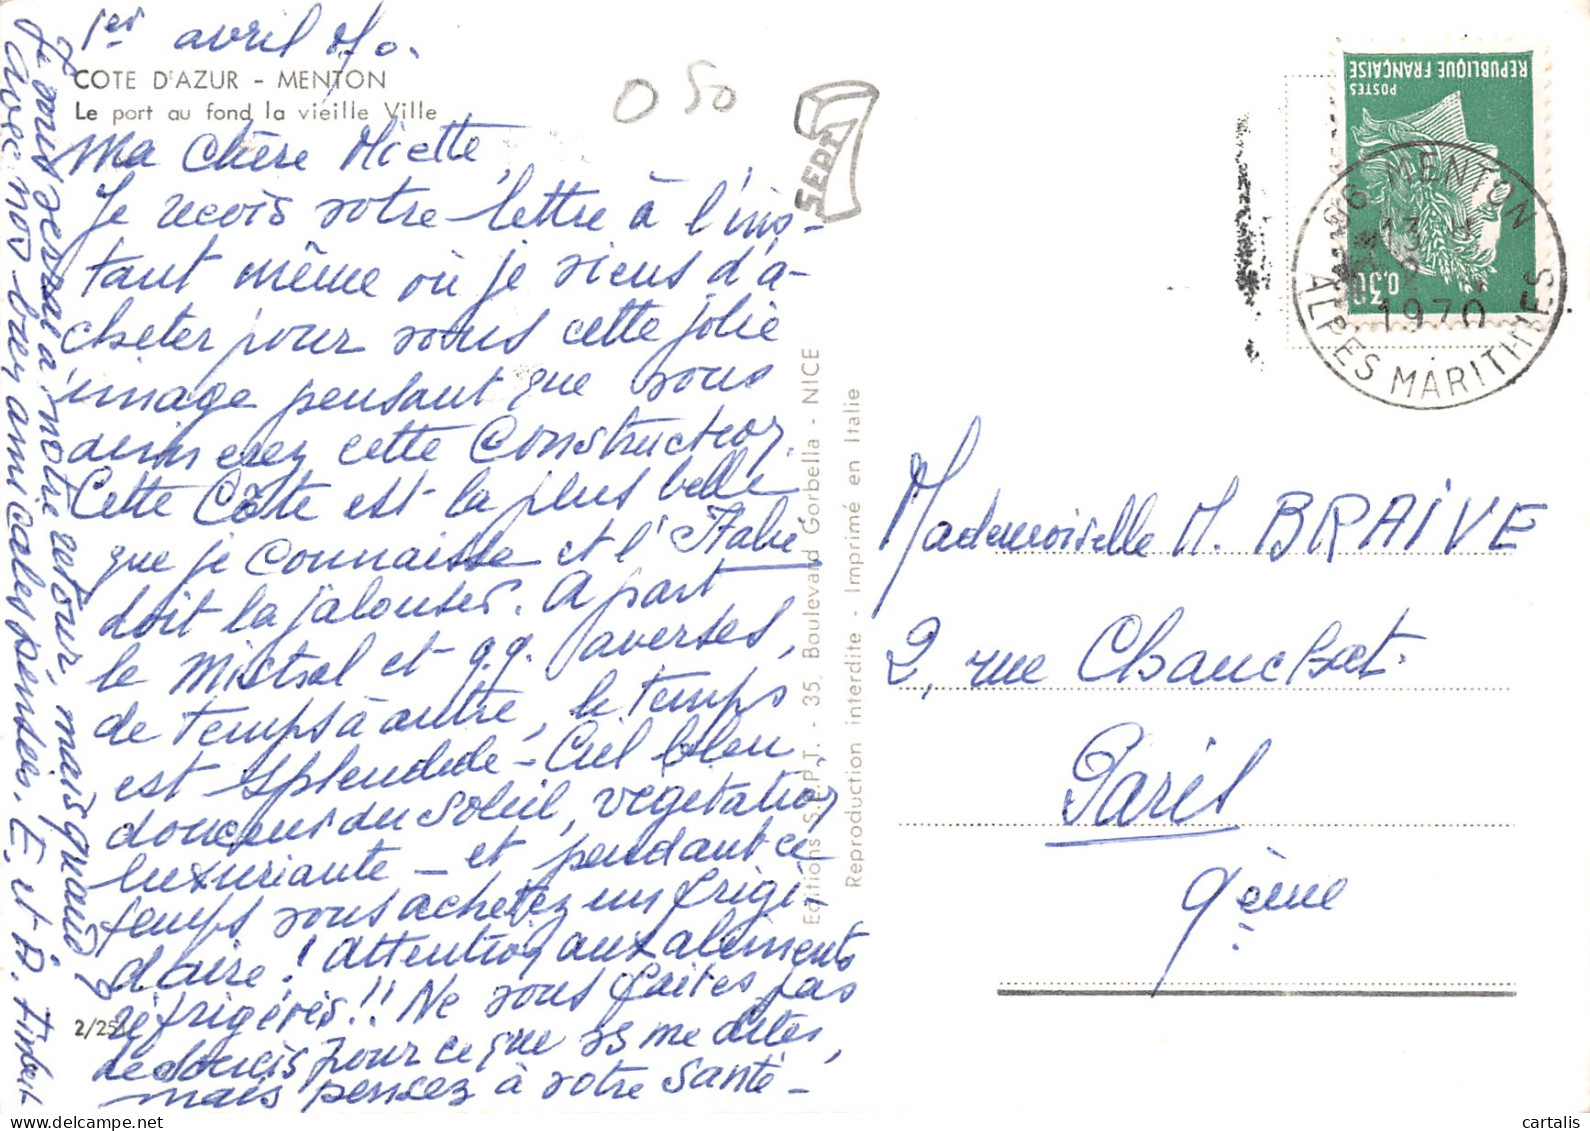 1er avril 70.
COTE D'AZUR - MENTON
Le port au fond la vieille Ville
Ma Chère Miette,
Je reçois votre lettre à l'ins-
tant même où je viens d'a-
cheter pour vous cette jolie
image pensant que vous
aimerez cette Construction.
Cette Côte est la plus belle
que je Connaisse et l'Italie
doit la jalouser. A part
le Mistral et q.q. averses,
de temps à autre, le temps
est splendide - Ciel bleu
douceur du soleil, végétation
luxuriante - et pendant ce
temps vous achetez un frigi-
daire! Attention aux aliments
réfrigérés!! Ne vous faites pas
de soucis pour ce que vs me dites,
mais pensez à votre santé -
Je vous verrai à notre retour, mais quand?
Avec nos bien amicales pensées. E. et A.
2/251
O 50
SEPT
Editions S.E.P.T. - 35, Boulevard Gorbella - NICE
Reproduction interdite - Imprimé en Italie
POSTES
REPUBLIQUE FRANÇAISE
0,30
06 MENTON
13 H
1970
ALPES MARITIMES
Mademoiselle M. BRAIVE
2, rue Chauchat.
Paris
9ème
cartalis.com